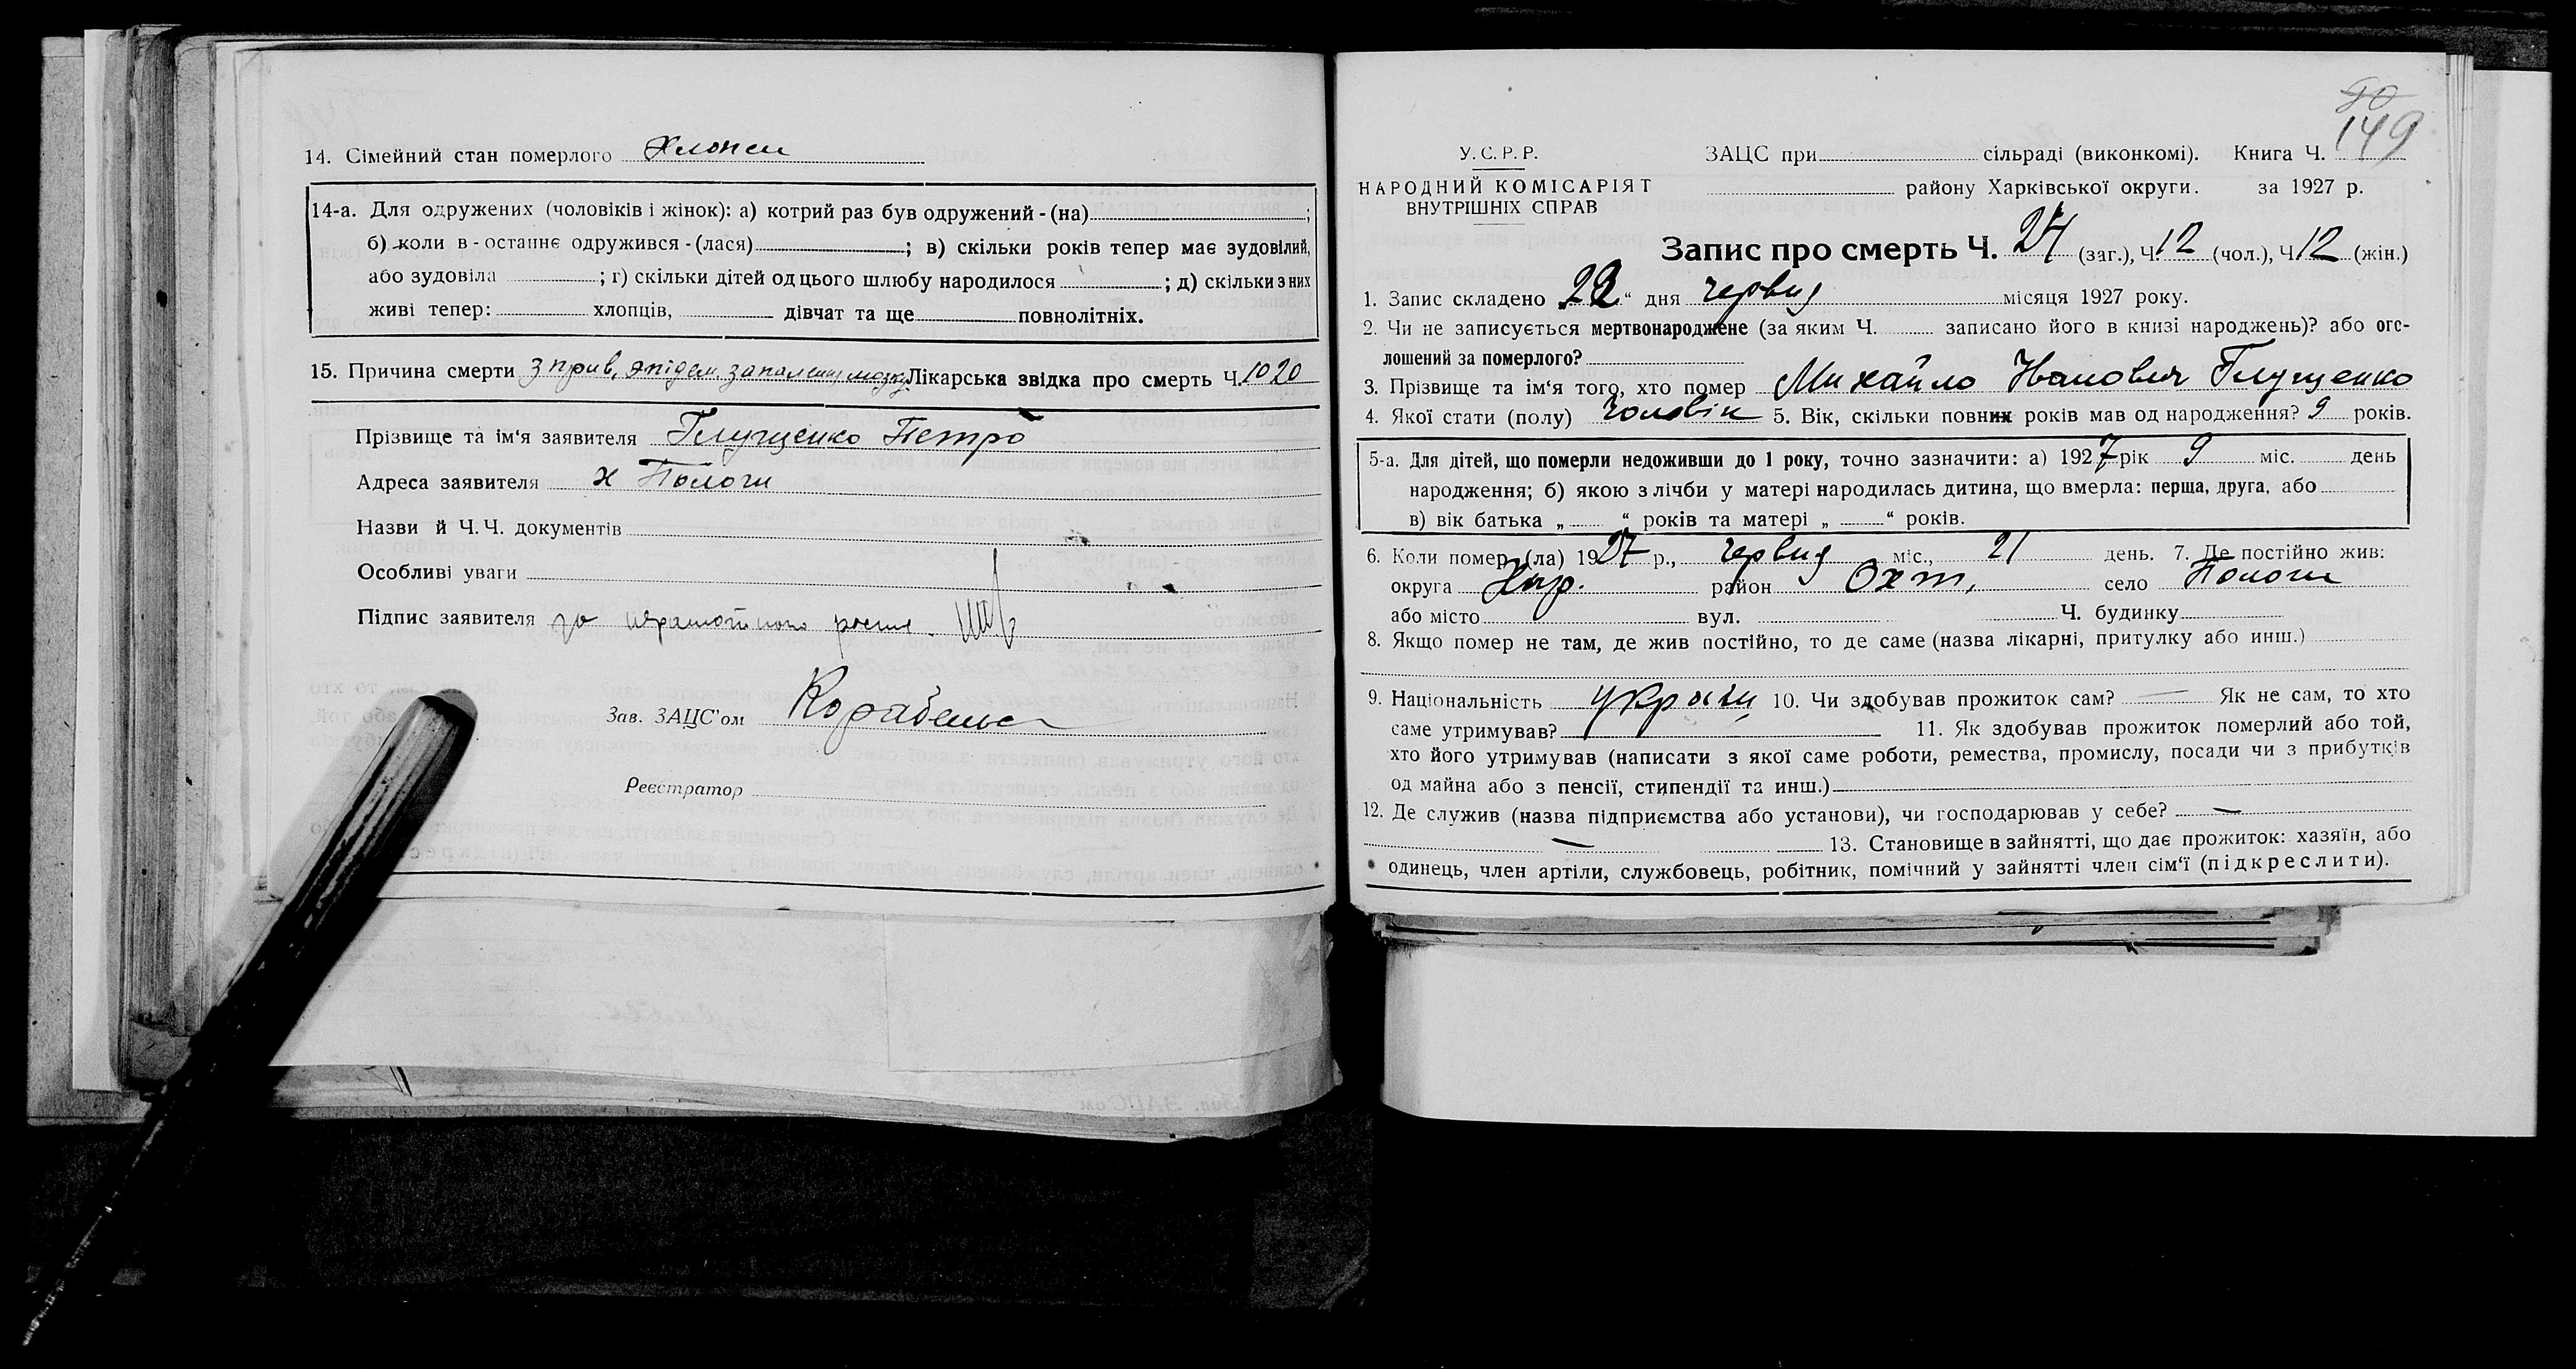 14. Сімейний стан померлого Хлопец
14-а. Для одружених (чоловіків і жінок): а) котрий раз був одружений - (на) ;
б) коли в - останнє одружився - (лася) ; в) скільки років тепер має зудовілий,
або зудовіла ; г) скільки дітей од цього шлюбу народилося ; д) скільки з них
живі тепер: хлопців, дівчат та ще повнолітніх.
15. Причина смерти з прив, эпідем. запалення мозку Лікарська звідка про смерть Ч. 1020
Прізвище та ім'я заявителя Глущенко Петро
Адреса заявителя х Пологи
Назви й Ч.Ч. документів
Особливі уваги
Підпис заявителя за неграмотного
Зав. ЗАЦС'ом
Реєстратор
50
149
У.С.Р.Р.
НАРОДНИЙ КОМІСАРІЯТ
ВНУТРІШНІХ СПРАВ
ЗАЦС при сільраді (виконкомі). Книга Ч.
району Харківської округи. за 1927 р.
Запис про смерть Ч. 24 (заг.), Ч. 12 (чол.), Ч. 12 (жін.)
1. Запис складено 22 “ дня червня місяця 1927 року.
2. Чи не записується мертвонароджене (за яким Ч. записано його в книзі народжень)? або ого-
лошений за померлого?
3. Прізвище та ім'я того, хто помер Михайло Іванович Глущенко
4. Якої стати (полу) чоловік 5. Вік, скільки повних років мав од народження? 9 років.
5-а. Для дітей, що померли недоживши до 1 року, точно зазначити: а) 1927 рік 9 міс. день
народження; б) якою з лічби у матері народилась дитина, що вмерла: перша, друга, або
в) вік батька „ “ років та матері „ “ років.
6. Коли помер (ла) 1927 р., червня міс., 21 день. 7. Де постійно жив:
округа Хар. район Охт. село Пологи
або місто вул. Ч. будинку
8. Якщо помер не там, де жив постійно, то де саме (назва лікарні, притулку або инш.)
9. Національність україн 10. Чи здобував прожиток сам? — Як не сам, то хто
саме утримував? 11. Як здобував прожиток померлий або той,
хто його утримував (написати з якої саме роботи, ремества, промислу, посади чи з прибутків
од майна або з пенсії, стипендії та инш.)
12. Де служив (назва підприємства або установи), чи господарював у себе? —
— 13. Становище в зайнятті, що дає прожиток: хазяїн, або
одинець, член артіли, службовець, робітник, помічний у зайнятті член сім'ї (підкреслити).